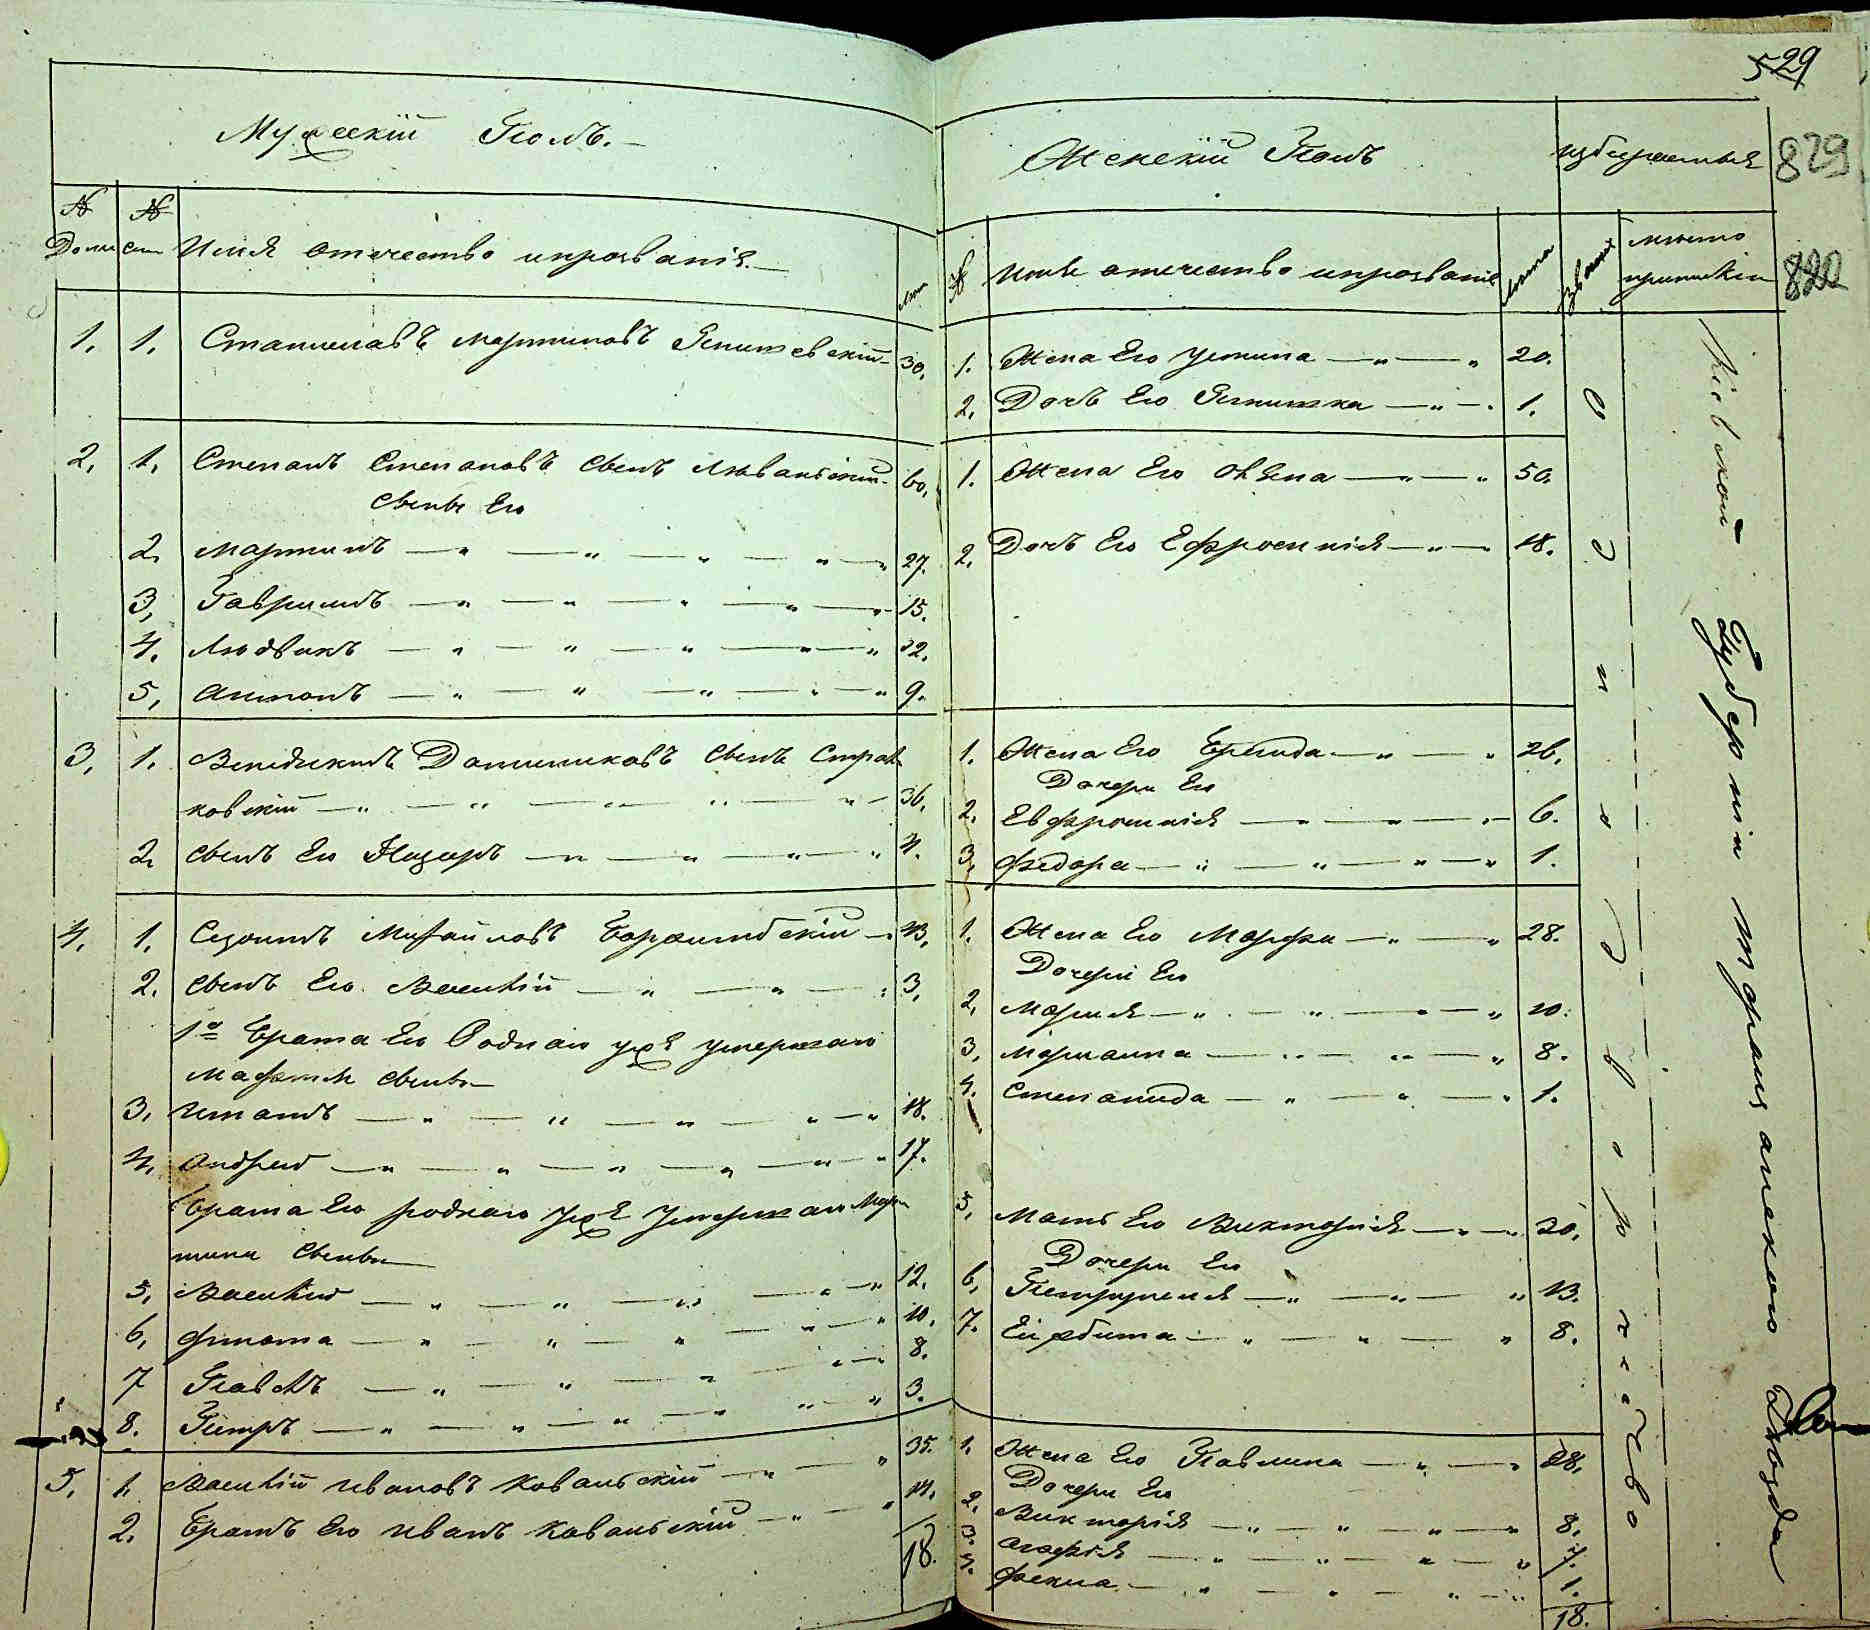 529
829
820
Мужескій Полъ.
№ Дома
№ сем
Имя отечество ипрозваніе
лета
1. 1. Станиславъ Мартиновъ Янишевскій 30.
2. 1. Степанъ Степановъ сынъ 60.
Сыны Его
2. Мартинъ — „ — „ — „ — „ 27.
3. Гаврилъ — „ — „ — „ — „ 15.
4. Людвикъ — „ — „ — „ — „ 12.
5. Антонъ — „ — „ — „ — „ 9.
3. 1. Венедиктъ Доминиковъ Сынъ
ковскій — „ — „ — „ — „ 36.
2. сынъ Его Назаръ — „ — „ — „ 4.
4. 1. Михайловъ 43.
2. сынъ Его Василій — „ — „ — 3.
1го Брата Его Роднаго ужѣ умершаго
сыны
3. Игнатъ — „ — „ — „ — „ 18.
4. Андрей — „ — „ — „ — „ 17.
Брата Его роднаго ужѣ умершаго Мар
тина Сыны
5. Василій — „ — „ — „ — „ 12.
6. — „ — „ — „ — „ 10.
7 Павелъ — „ — „ — „ — „ 8.
8. Петръ — „ — „ — „ — „ 3.
5. 1. Василій Ивановъ Ковальскій — „ — „ 35.
2. Братъ Его Иванъ Ковальскій — „ — „
18.
Женскій Полъ
избираемыя
№
Имя отечество ипрозваніе
лета
званіе
место приписки
1. Жена Его Устина — „ — „ 20.
2. Дочь Его — „ — 1.
1. Жена Его — „ — „ 50.
2. Дочь Его Ефросинія — „ — 18.
1. Жена Его Бригида — „ — „ 26.
Дочери Его
2. Евфросинія — „ — „ — 6.
3. Федора — „ — „ — „ — „ 1.
1. Жена Его Марфа — „ — „ 28.
Дочери Его
2. Марія — „ — „ — „ — „ 10.
3. Маріанна — „ — „ — „ 8.
4. Степанида — „ — „ — „ 1.
5. Мать Его Викторія — „ — „ 30.
Дочери Ея
6. — „ — „ — „ 13.
7. — „ — „ — „ 8.
1. Жена Его Павлина — „ — „ 28.
Дочери Его
2. Викторія — „ — „ — „ — „ 8.
3. Агафія — „ — „ — „ — „
4. Фекла — „ — „ — „ 1.
18.
Кіевской Губерніи Таращанскаго Уезда